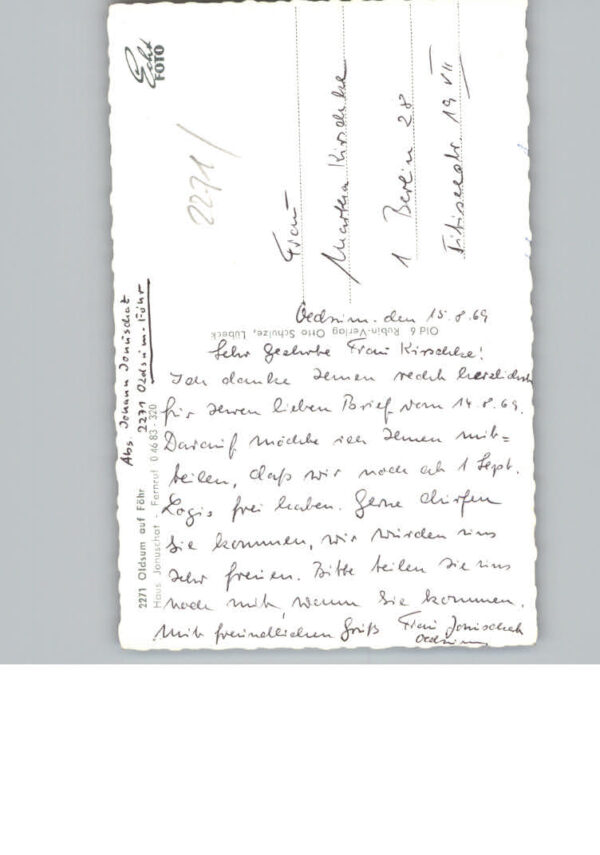 Echt
FOTO
2271/
Frau
Martha Kirschke
1 Berlin 28
Titiseestr. 19 VII
Abs. Johann Jonuschat
2271 Oldsum-Föhr
2271 Oldsum auf Föhr
Haus Jonuschat - Fernruf 0 46 83 - 320
Old 6 Rubin-Verlag Otto Schulze, Lübeck
Oldsum. den 15.8.69
Sehr Geehrte Frau Kirschke!
Ich danke Ihnen recht herzlich
für Ihren lieben Brief vom 14.8.69.
Darauf möchte ich Ihnen mit=
teilen, daß wir noch ab 1 Sept.
Logis frei haben. Gerne dürfen
Sie kommen, wir würden uns
sehr freuen. Bitte teilen Sie uns
noch mit, wann Sie kommen.
Mit freundlichen Grüß Frau Jonuschat
Oldsum